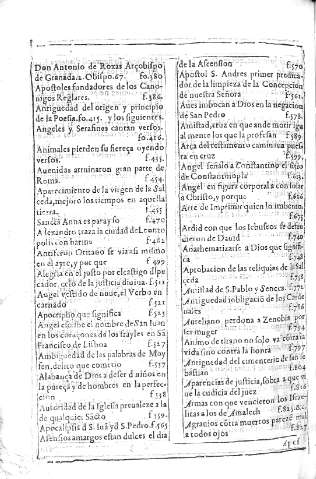 Don Antonio de Rozas Arçobispo
de Granada,2. Obispo.67. fo.380
Apostoles fundadores de los Cano-
nigos Reglares. f.386.
Antiguedad del origen y principio
de la Poesia.fo.415. y los siguientes.
Angeles y Serafines cantan versos.
fo.416.
Animales pierden su fiereza oyendo
versos. f.435.
Auenidas arruinaron gran parte de
Roma. f.454.
Aparecimiento de la virgen de la Sal
ceda,mejoro los tiempos en aquella
tierra. f.455
Sancta Anna es parayso f.470
Alexandro traza la ciudad de
poli con harina f.482
en el ayre, y por que f.499
Alegria en el justo por el castigo del pe
cador, celo de la justicia diuina. f.511
Angel vestido de nuue, el Verbo en-
carnado f.521
Apocalipsi que significa f.523
Angel escriue el nombre de San Iuan
en los coraçones de los frayles en Sã
Francisco de Lisboa f.527
Ambiguedad de las palabras de Moy
sen, delito que cometio f.537
Alabança de Dios a defer d años en
la pureça y de hombres en la perfec-
cion f.558
Autoridad de la Iglesia preualece a la
de qualquier Sãcto f.559.
Apocalipsis d S. Iuã y d S. Pedro f.565
Ascensios amargos estan dulces el dia
de la Ascension f.570
Apostol S. Andres primer predica-
dor de la limpieza de la Concepcion
de nuestra Señora f.561.
Aues imbocan a Dios en la negacion
de San Pedro f.578.
Amistad, en que ande morir igual
mente los que la profesan f.589
Arca del testamento camina puesta
en cruz f.599.
Angel señalo a Constantino el sitio
de Constantinopla f.613.
Angel en figura corporal consolar
a Christo, y porque f.626
Arte de Imprimir quien la inuento
f.675
Ardid con que los Iebuseos se defen-
dieron de Dauid f.740
Anathematizarse a Dios que signifi-
ca f.748
Aprobacion de las reliquias de la Sal
ceda f.758
Amistad de S. Pablo y Seneca. f.772
Antiguedad
nales f.786
Aureliano perdona a Zenobia por
ser muger f.794
Animo de tirano no solo va contra la
vida sino contra la honra f.797
Antiguedad del cimenterio de San Se
bastian f.804
Apariencias de justicia, sobra a que vi
ue la cudicia del juez f.816
Armas con que vencieron los Israe-
litas a los de Amalech f.825.
Agrauios cõtra muertos parecẽ mal
a todos ojos f.827